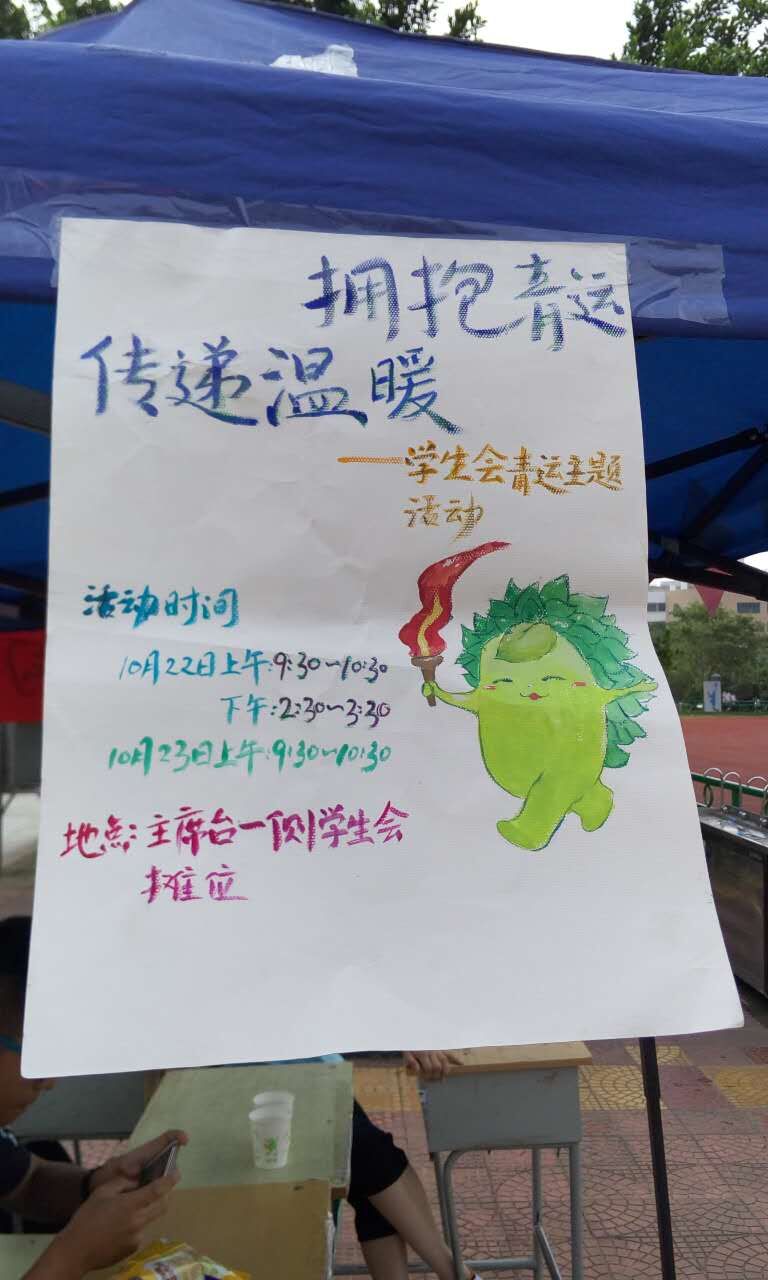 拥抱青运
传递温暖
——学生会青运主题
活动
活动时间
10月22日上午:9:30~10:30
下午:2:30~3:30
10月23日上午:9:30~10:30
地点:主席台一侧学生会
摊位